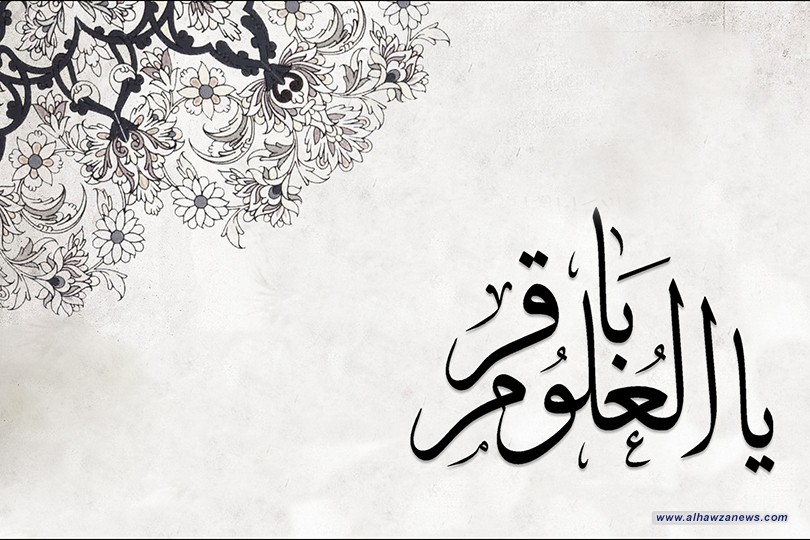 يا باقر العلوم
www.alhawzanews.com